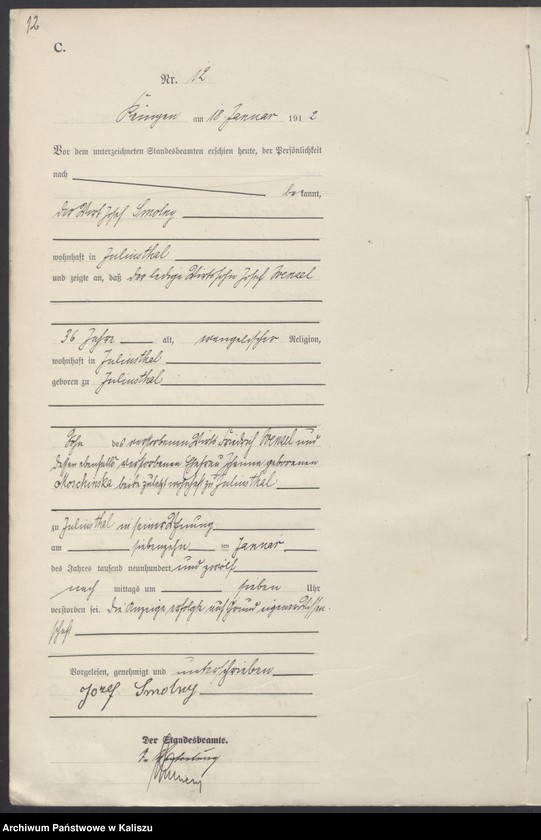 12
C.
Nr. 12
am 18 Januar 1912
Vor dem unterzeichneten Standesbeamten erschien heute, der Persönlichkeit
nach
bekannt,
der Wirt Josef Smolny
wohnhaft in Juliusthal
und zeigte an, daß der ledige Wirtssohn Josef Wenzel
36 Jahre alt, evangelischer Religion,
wohnhaft in Juliusthal
geboren zu Juliusthal
Sohn des verstorbenen Wirts Friedrich Wenzel und
dessen ebenfalls verstorbenen Ehefrau geborenen
beide zuletzt wohnhaft zu Juliusthal
zu Juliusthal in seiner Wohnung
am siebenzehn ten Januar
des Jahres tausend neunhundert und zwölf
nach mittags um sieben Uhr
verstorben sei. Die Anzeige erfolgte auf Grund eigener Wissen-
schaft
Vorgelesen, genehmigt und unterschrieben
Jozef Smolny
Der Standesbeamte.
In Vertretung
Archiwum Państwowe w Kaliszu